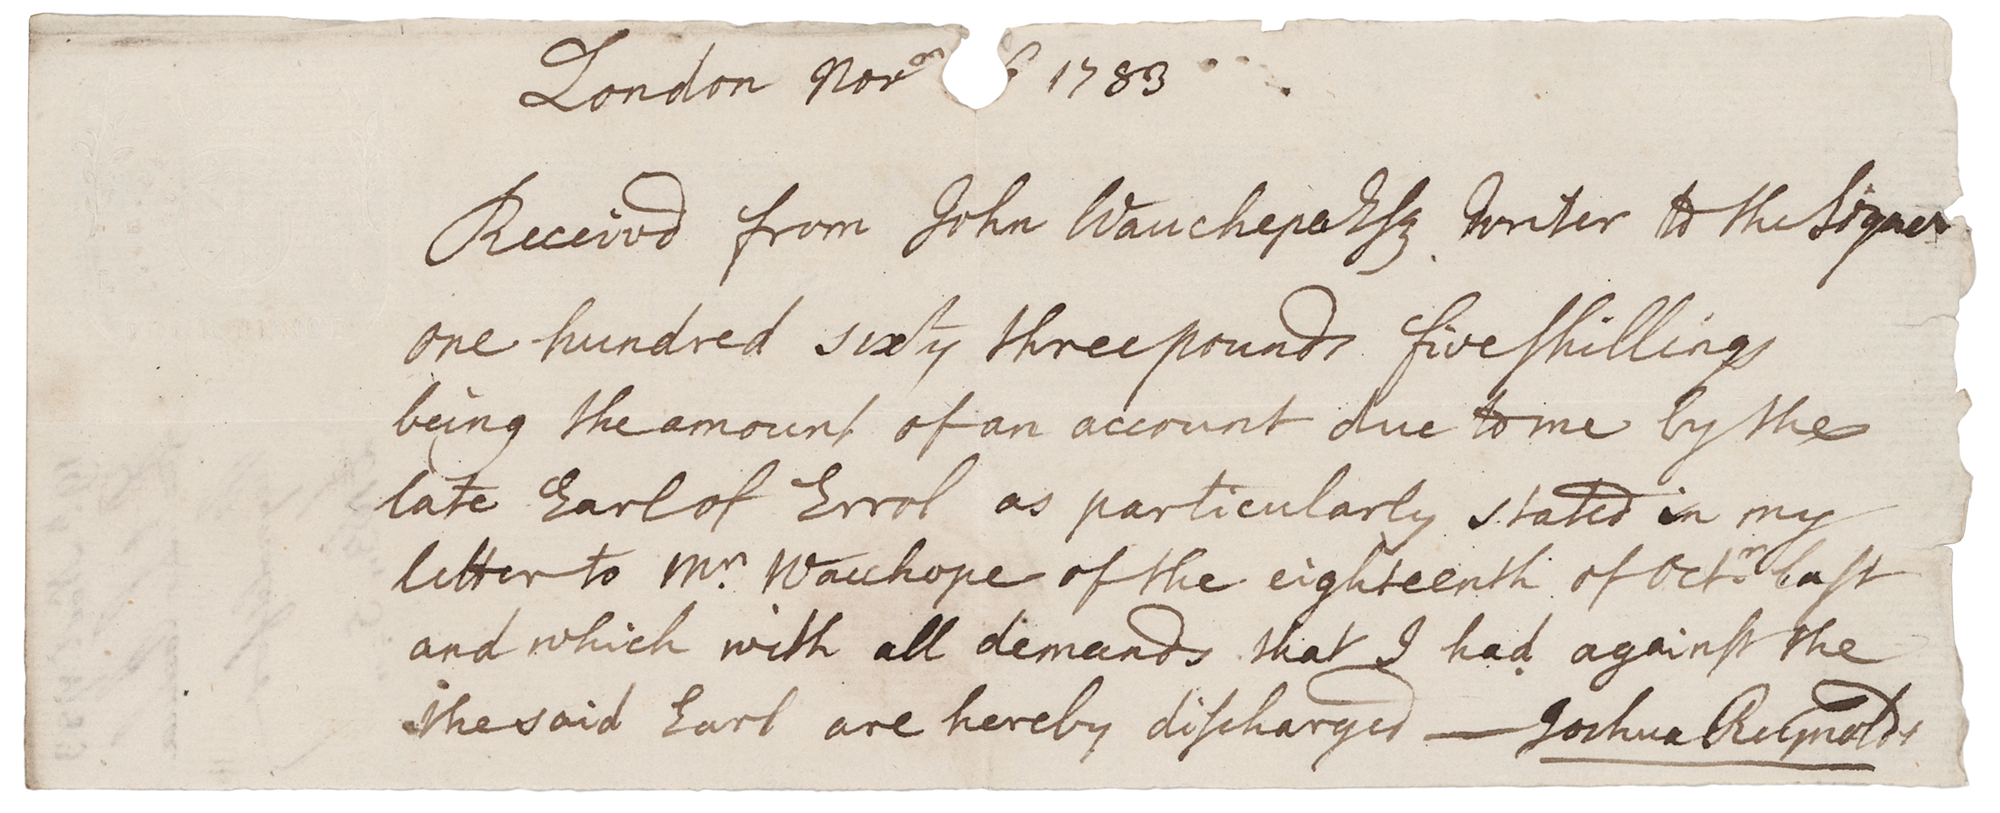 London Novr 6 1783
Receivd from John Wauchope Esq Writer to the Signet
one hundred sixty three pounds five shillings
being the amount of an account due to me by the
late Earl of Errol as particularly stated in my
letter to Mr. Wauchope of the eighteenth of Octr. last
and which with all demands that I had against the
the said Earl are hereby discharged — Joshua Reynolds